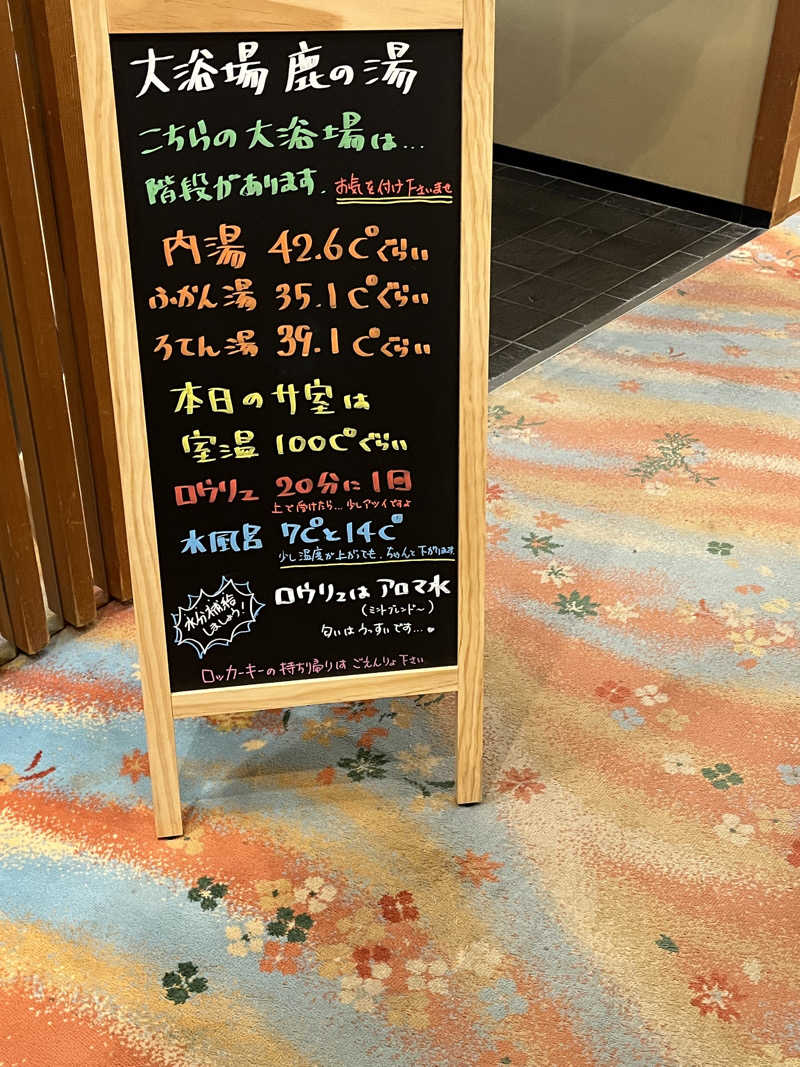 大浴場 鹿の湯
こちらの大浴場は...
階段があります. お気を付け下さいませ
内湯 42.6C°ぐらい
ふかん湯 35.1C°ぐらい
ろてん湯 39.1C°ぐらい
本日のサ室は
室温 100C°ぐらい
ロウリュ 20分に1回
上で受けたら...少しアツイですよ
水風呂 7C°と14C°
少し温度が上がっても、ちゃんと下がります
水分補給
しましょう!
ロウリュは アロマ水
(ミントブレンド〜)
匂いはうっすいです...
ロッカーキーの持ち帰りは ごえんりょ下さい